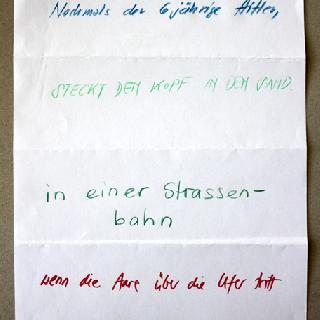 Nochmals der 6 jährige Hitler,
STECKT DEN KOPF IN DEN SAND.
in einer Strassen-
bahn
wenn die Aare über die Ufer tritt